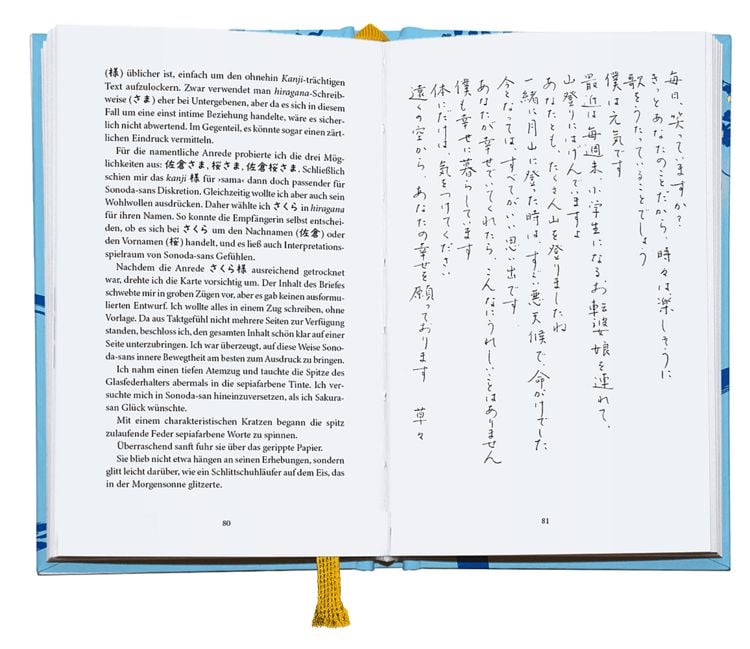 (様) üblicher ist, einfach um den ohnehin Kanji-trächtigen
Text aufzulockern. Zwar verwendet man hiragana-Schreib-
weise (さま) eher bei Untergebenen, aber da es sich in diesem
Fall um eine einst intime Beziehung handelte, wäre es sicher-
lich nicht abwertend. Im Gegenteil, es könnte sogar einen zärt-
lichen Eindruck vermitteln.
Für die namentliche Anrede probierte ich die drei Mög-
lichkeiten aus: 佐倉さま、桜さま、佐倉桜さま. Schließlich
schien mir das kanji 様 für ›sama‹ dann doch passender für
Sonoda-sans Diskretion. Gleichzeitig wollte ich aber auch sein
Wohlwollen ausdrücken. Daher wählte ich さくら in hiragana
für ihren Namen. So konnte die Empfängerin selbst entschei-
den, ob es sich bei さくら um den Nachnamen (佐倉) oder
den Vornamen (桜) handelt, und es ließ auch Interpretations-
spielraum von Sonoda-sans Gefühlen.
Nachdem die Anrede さくら様 ausreichend getrocknet
war, drehte ich die Karte vorsichtig um. Der Inhalt des Briefes
schwebte mir in groben Zügen vor, aber es gab keinen ausformu-
lierten Entwurf. Ich wollte alles in einem Zug schreiben, ohne
Vorlage. Da aus Taktgefühl nicht mehrere Seiten zur Verfügung
standen, beschloss ich, den gesamten Inhalt schön klar auf einer
Seite unterzubringen. Ich war überzeugt, auf diese Weise Sono-
da-sans innere Bewegtheit am besten zum Ausdruck zu bringen.
Ich nahm einen tiefen Atemzug und tauchte die Spitze des
Glasfederhalters abermals in die sepiafarbene Tinte. Ich ver-
suchte mich in Sonoda-san hineinzuversetzen, als ich Sakura-
san Glück wünschte.
Mit einem charakteristischen Kratzen begann die spitz
zulaufende Feder sepiafarbene Worte zu spinnen.
Überraschend sanft fuhr sie über das gerippte Papier.
Sie blieb nicht etwa hängen an seinen Erhebungen, sondern
glitt leicht darüber, wie ein Schlittschuhläufer auf dem Eis, das
in der Morgensonne glitzerte.
80
毎日、笑っていますか?
きっとあなたのことだから、時々は楽しそうに
歌をうたっていることでしょう
僕は元気です
最近は毎週末、小学生になるお転婆娘を連れて、
山登りにはげんでいますよ
あなたとも、たくさん山を登りましたね
一緒に月山に登った時は、すごい悪天候で、命がけでした
今となっては、すべてがいい思い出です
あなたが幸せでいてくれたら、こんなにうれしいことはありません
僕も幸せに暮らしています
体にだけは、気をつけてください
遠くの空から、あなたの幸せを願っております 草々
81